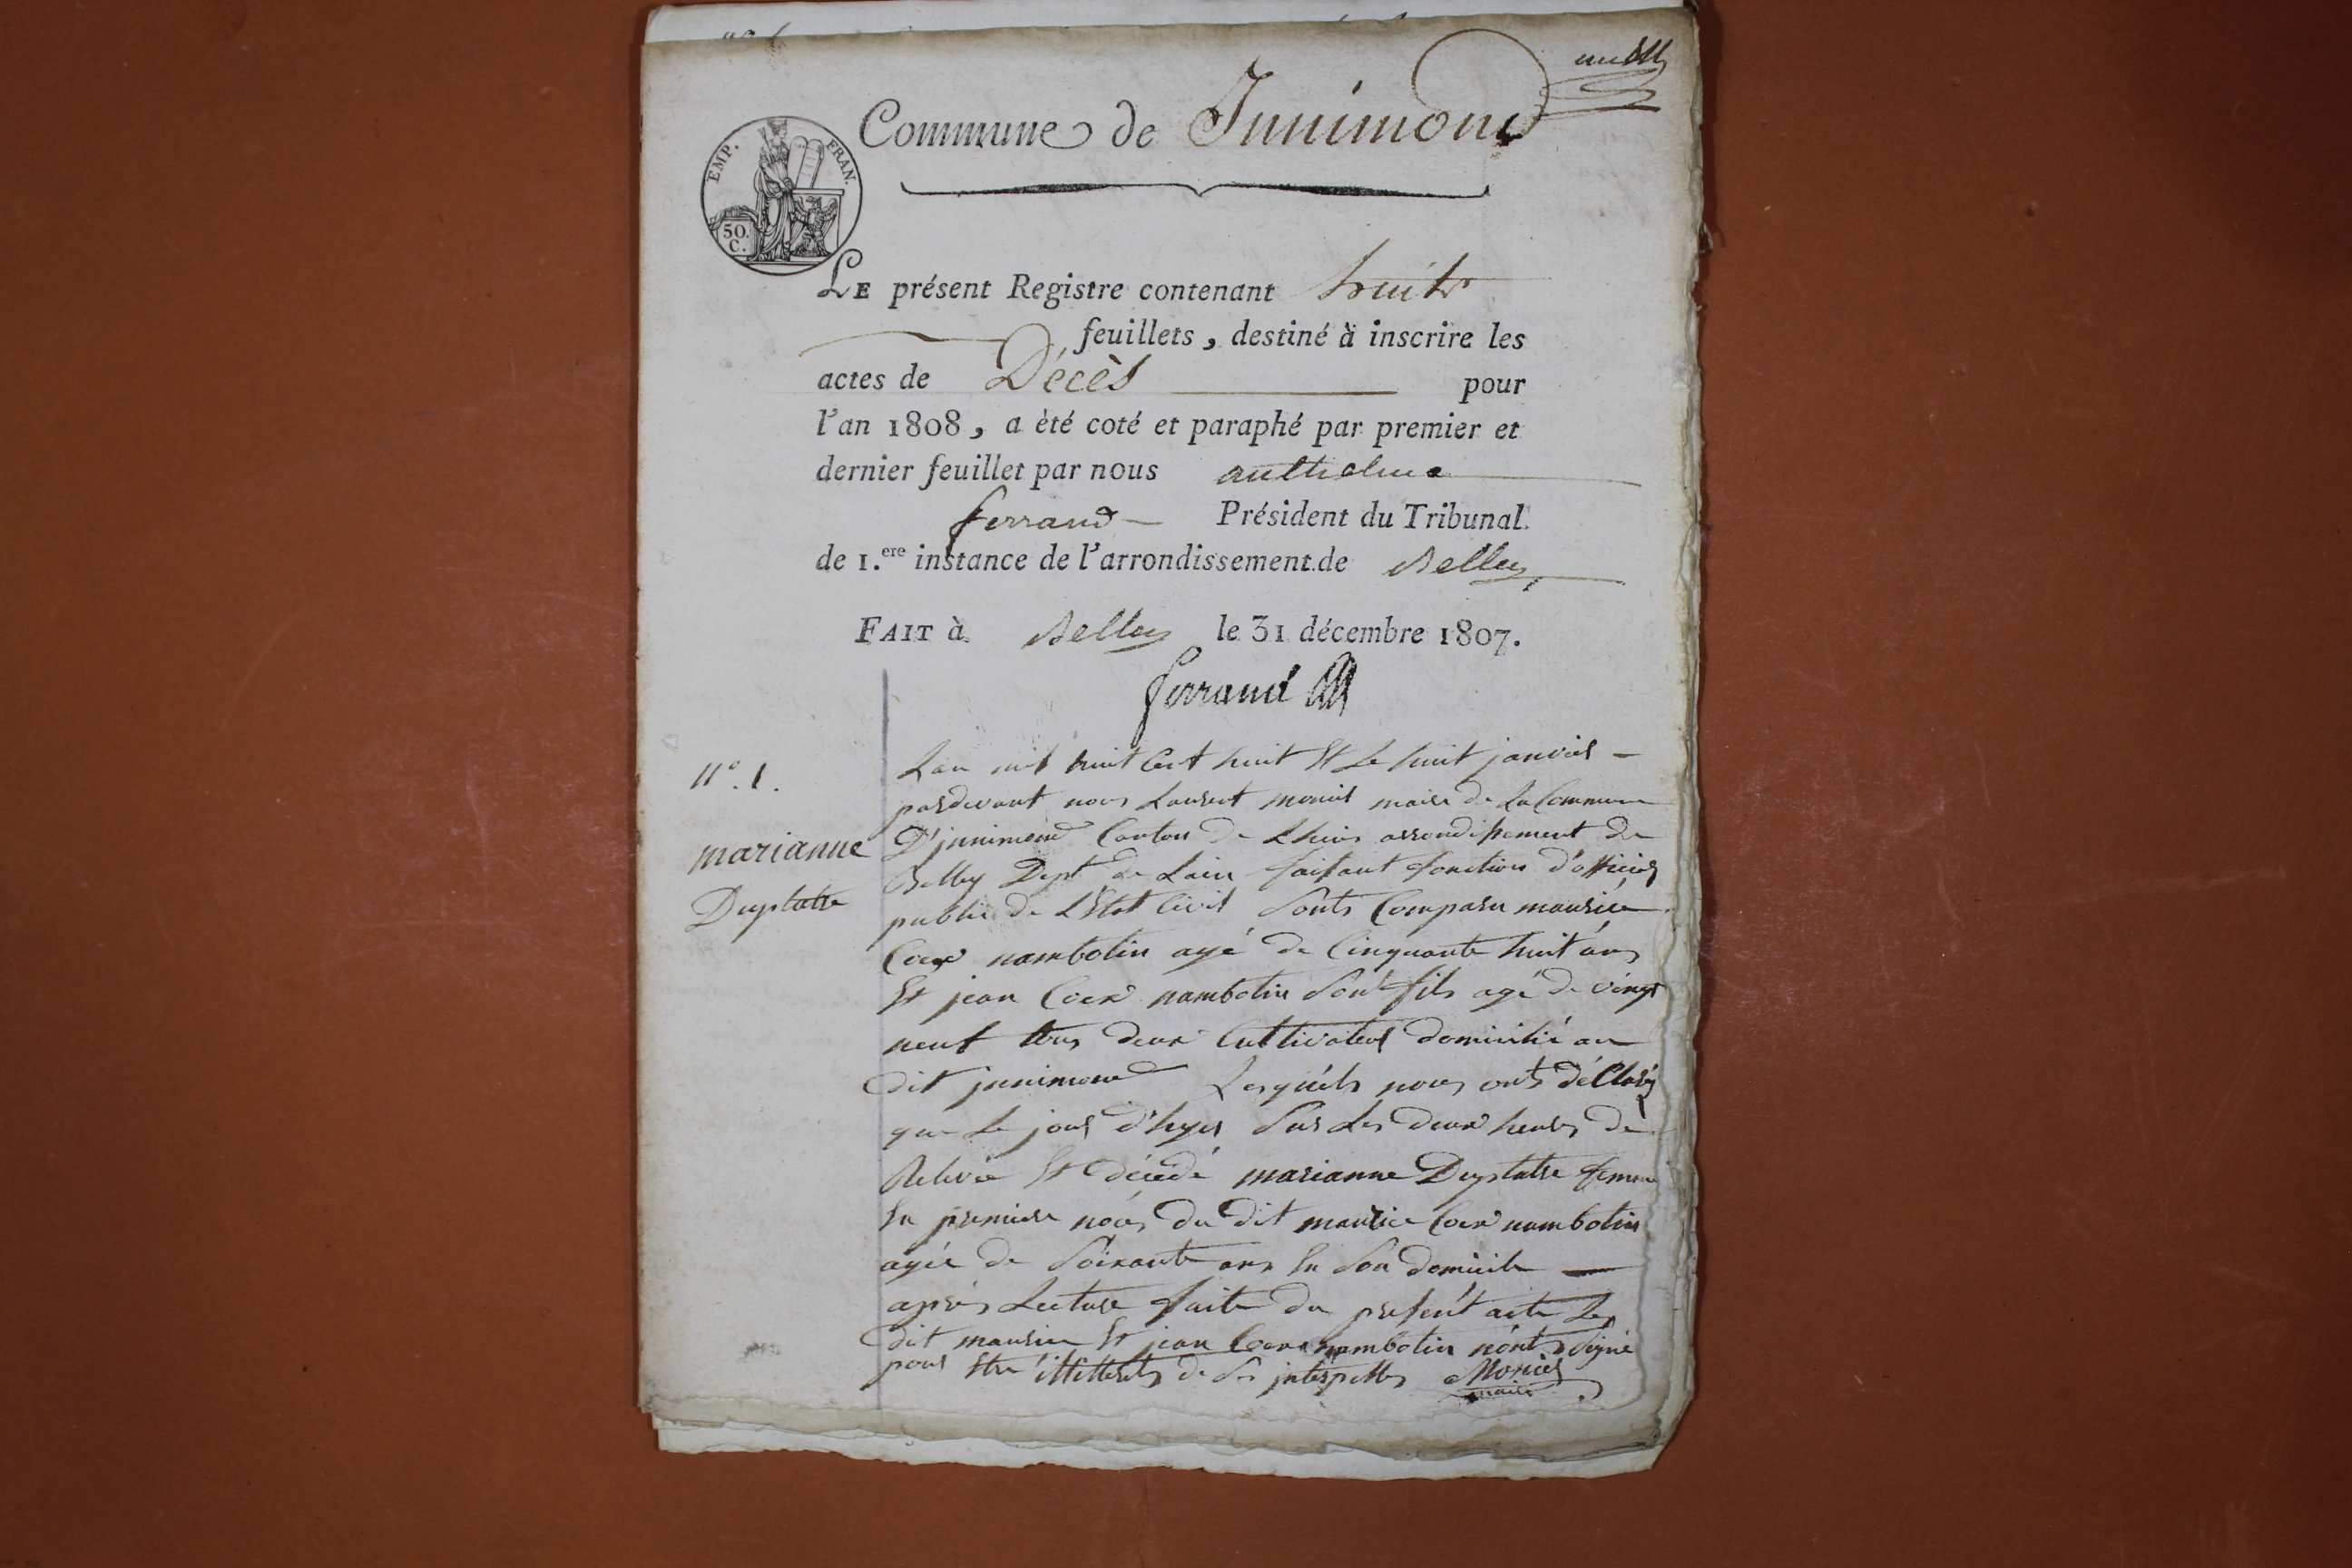 Commune de Innimond
EMP. FRAN.
50.
C.
LE présent Registre contenant huit
feuillets, destiné à inscrire les
actes de Décès pour
l'an 1808, a èté coté et paraphé par premier et
dernier feuillet par nous anthelme
ferrand Président du Tribunal
de 1.ere instance de l'arrondissement de Belley
FAIT à Belley le 31 décembre 1807.
ferrand
N° 1.
marianne
Duplatre
Lan mil huit Cent huit Et Le huit janvier
pardevant nous Laurent monier maire de La Commune
D'jnnimond Canton de Lhuis arrondissement de
Belley Dept de Lain faisant fonction d'officier
public de L'Etat Civil Sonts Comparu maurice
Coux nambotin agé de Cinquante huit ans
Et jean Coux nambotin Son fils agé de vingt
neuf tous deux Cultivateur domicilié au
dit jnnimond Lesquels nous onts déClaré
que Le jour d'hyer Sur Les deux heures de
Relevée Et décédé marianne Duplatre femme
En premiere nôces du dit maurice Coux nambotin
agée de Soixante ans En Son domicile
après Lecture faite du present acte Les
dit maurice Et jean Coux nambotin n'ont Signé
pour Etre illetterés de Ce jnterpellés Monier
maire